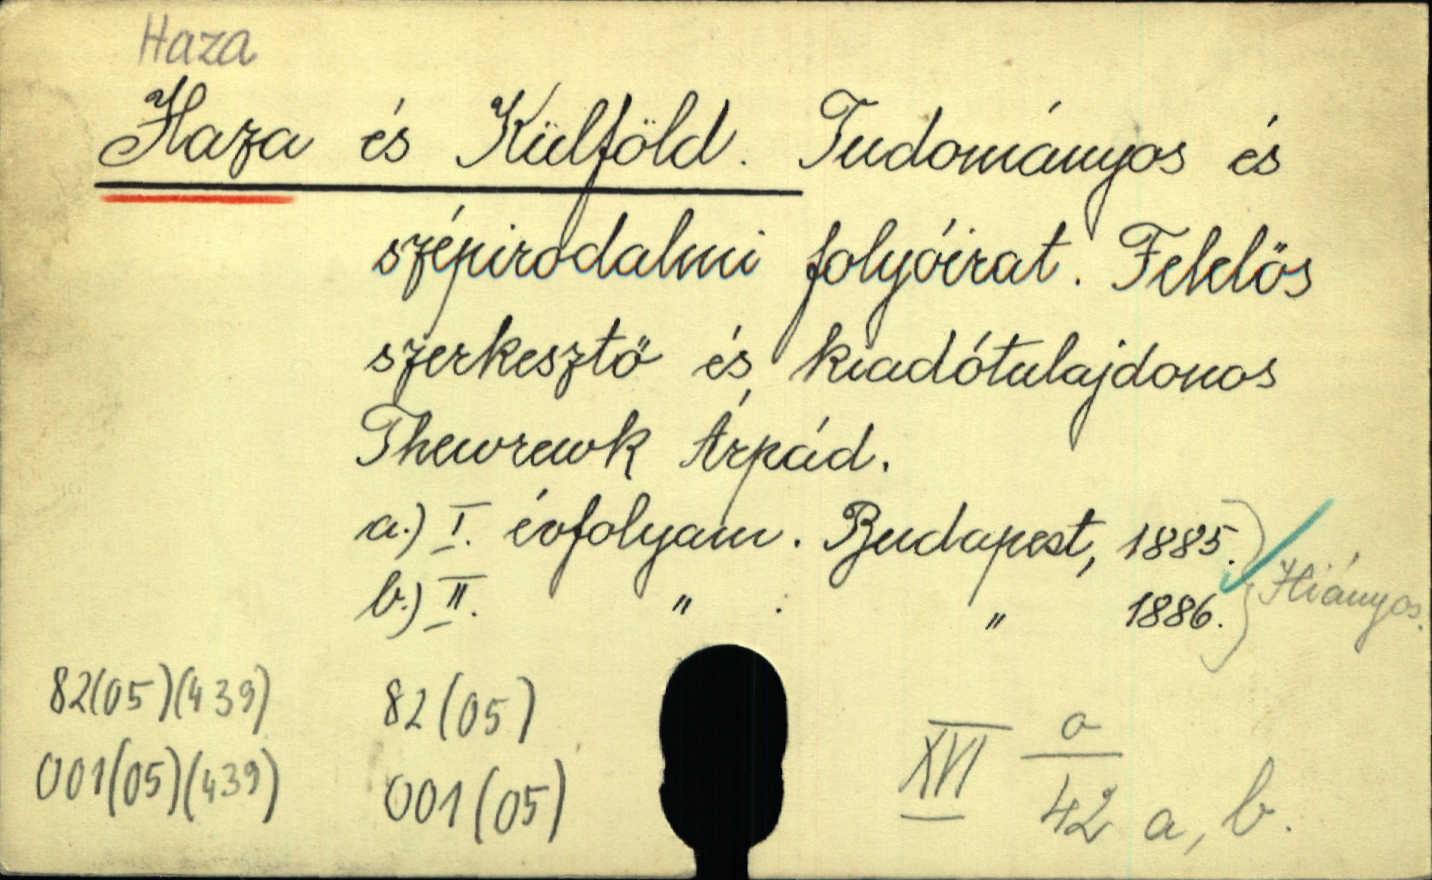 Haza
Haza és Külföld. Tudományos és
szépirodalmi folyóirat. Felelős
szerkesztő és kiadótulajdonos
Thewrewk Árpád.
a.) I. évfolyam. Budapest, 1885.
b.) II. " . " 1886. Hiányos.
82(05)(439) 82(05)
001(05)(439) 001(05)
XVI a/42 a, b.